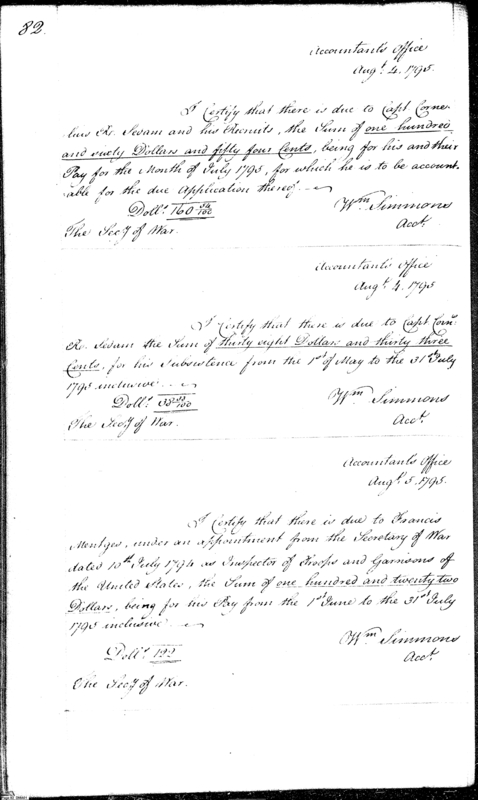 82.
Accountant's Office
Augt. 4. 1795.
I Certify that there is due to Capt Corne-
lius R. Sedam and his Recruits, the Sum of one hundred
and sixty Dollars and fifty four Cents, being for his and their
Pay for the Month of July 1795, for which he is to be account-
able for the due Application thereof
Dolls. 160 54/100
Wm Simmons
Acct.
The Secy of War.
Accountant's Office
Augt. 4. 1795
I Certify that there is due to Capt Corns.
R. Sedam the Sum of thirty eight Dollars and thirty three
Cents, for his Subsistence from the 1st of May to the 31st July
1795 inclusive.
Dolls. 38 33/100
Wm Simmons
Acct.
The Secy of War.
Accountant's Office
Augt. 5. 1795.
I Certify that there is due to Francis
Mentges, under an appointment from the Secretary of War
dated 10th July 1794 as Inspector of Troops and Garrisons of
the United States, the Sum of one hundred and twenty two
Dollars, being for his Pay from the 1st June to the 31st July
1795 inclusive
Dolls. 122
Wm Simmons
Acct.
The Secy of War.